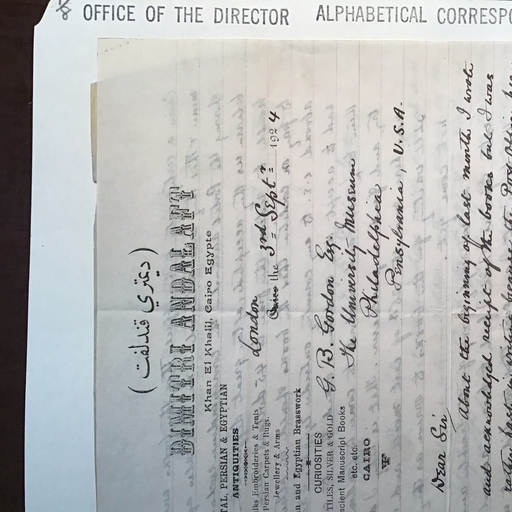 (ديمتري قندلفت)
DIMITRI ANDALAFT
Khan El Khalil, Cairo Egypte
TAL, PERSIAN & EGYPTIAN
ANTIQUITIES
lks Embroideries & Tents
Persian Carpets & Rugs.
Jewellery & Arms
an and Egyptian Brasswork
CURIOSITIES
TILES, SILVER & GOLD
ncient Manuscript Books
etc. etc.
CAIRO
London
Cairo the 3rd Septr 1924
G. B. Gordon Esq.
The University Museum
Philadelphia
Pensylvania, U.S.A.
Dear Sir
About the beginning of last month I wrote
and acknowledged receipt of the books but I was
rather hasty in writing because the Post Office
OFFICE OF THE DIRECTOR ALPHABETICAL CORRESPO